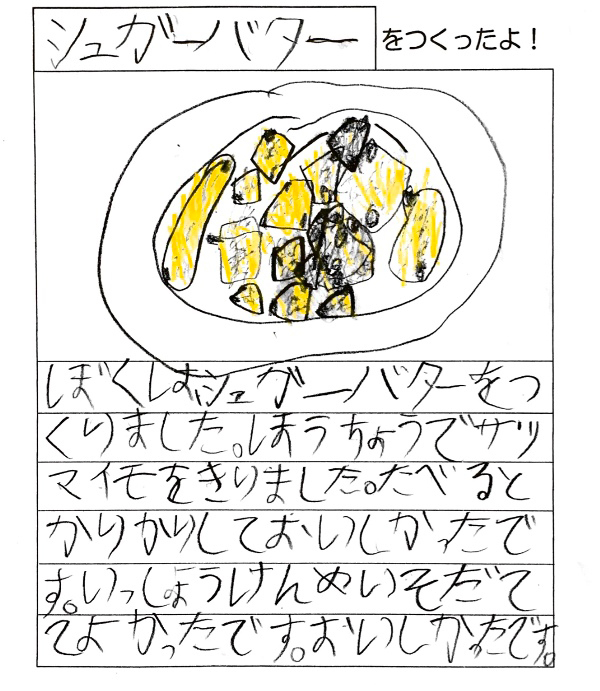 シュガーバターをつくったよ！
ぼくはシュガーバターをつ
くりました。ほうちょうでサツ
マイモをきりました。たべると
かりかりしておいしかったで
す。いっしょうけんめいそだて
てよかったです。おいしかったです。